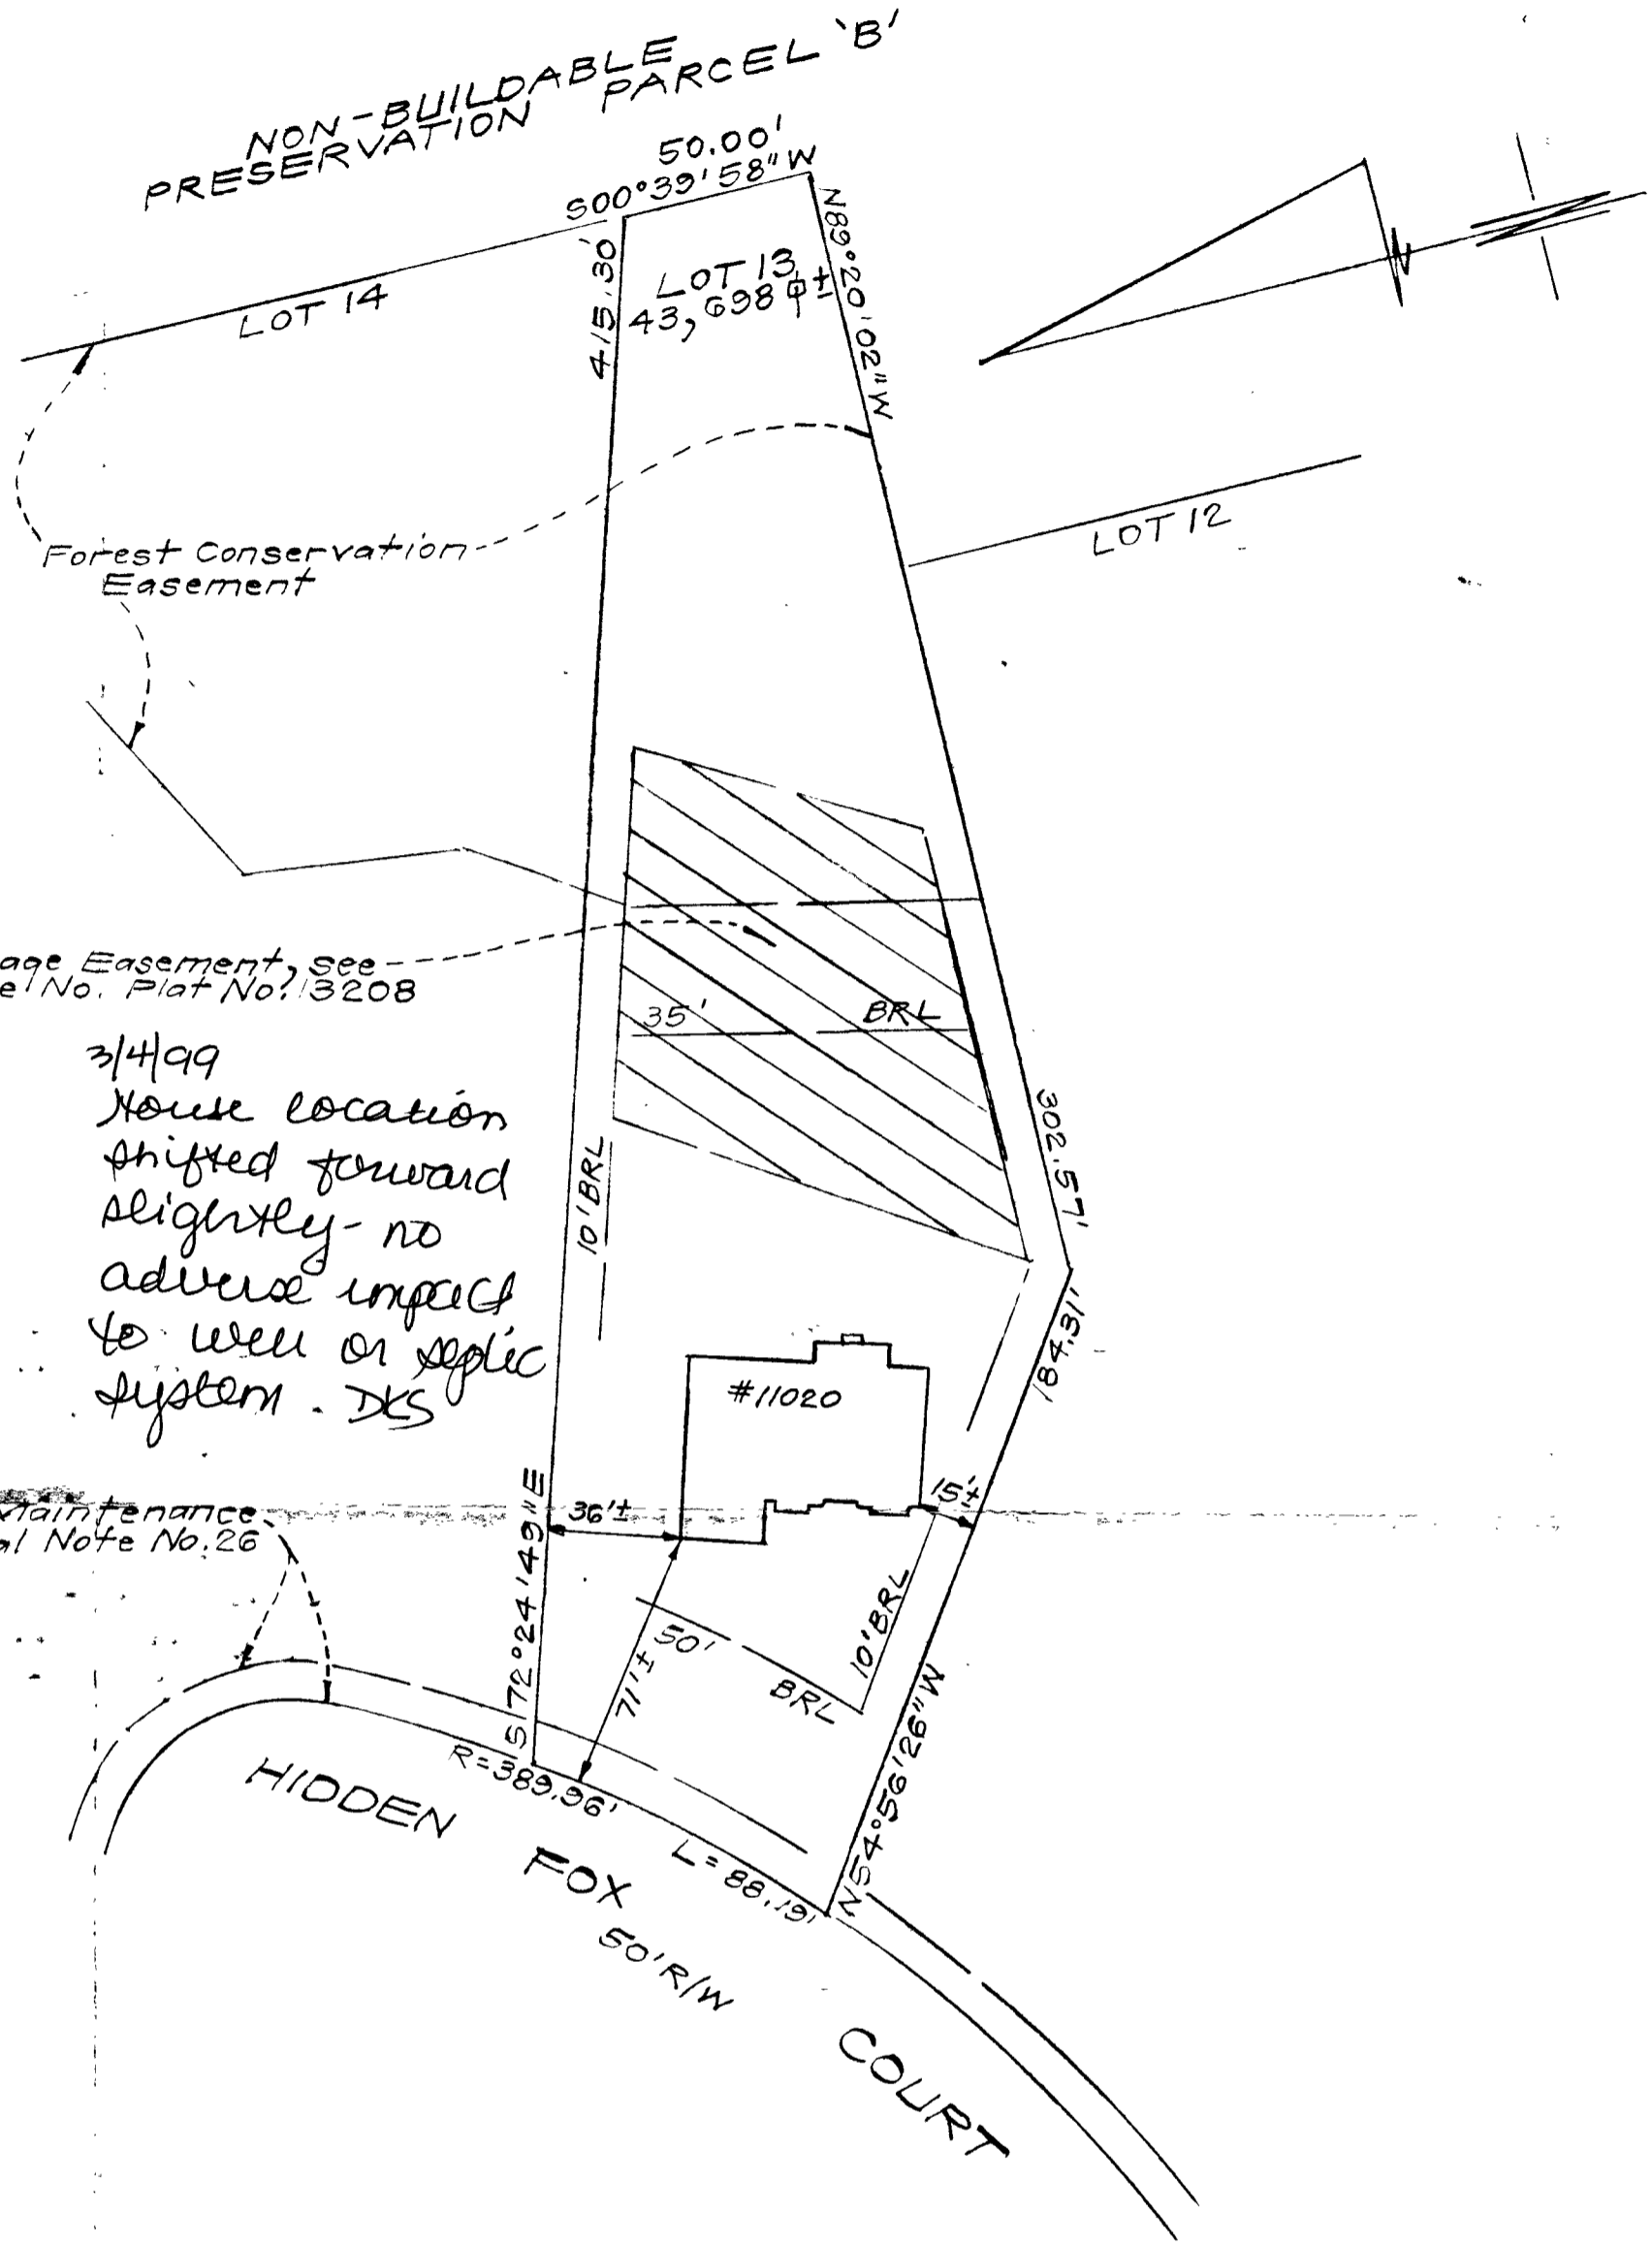 NON-BUILDABLE
PRESERVATION PARCEL 'B'
50.00'
S00°39'58"W
N89°20'02"W
415.30'
LOT 13
43,698 ±
LOT 14
LOT 12
N
Forest Conservation
Easement
age Easement, see
e No. Plat No. 13208
35' BRL
3/4/99
House location
shifted forward
slightly - no
adverse impact
to well or septic
system. DKS
10' BRL
302.57'
184.31'
#11020
15'±
36'±
Maintenance
al Note No. 26
S72°24'49"E
71'±
50'
BRL
10' BRL
N54°56'26"W
R=389.96'
L=88.19'
HIDDEN FOX COURT
50' R/W